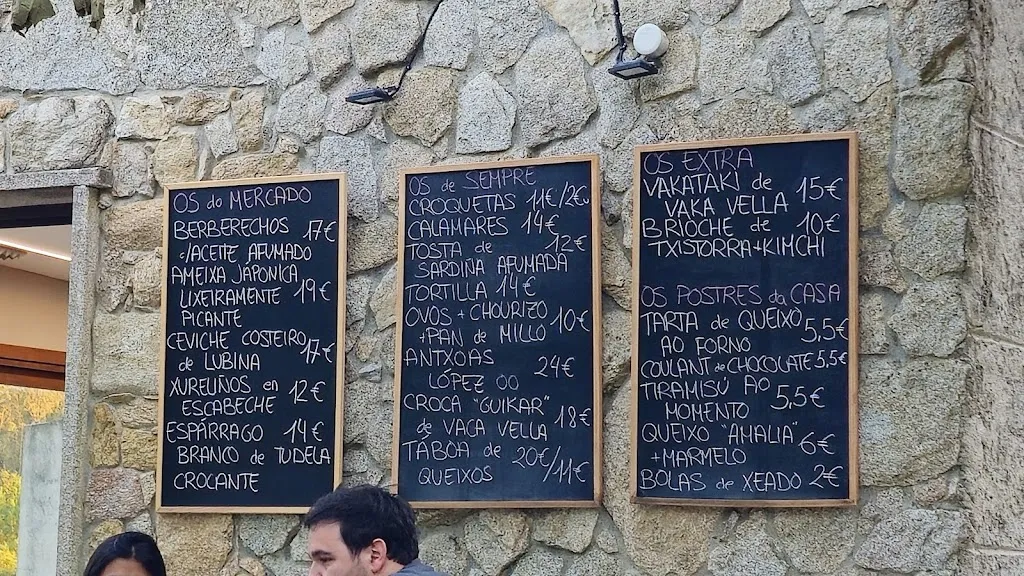 OS do MERCADO
BERBERECHOS 17€
c/ACEITE AFUMADO
AMEIXA JAPONICA
LIXEIRAMENTE 19€
PICANTE
CEVICHE COSTEIRO
de LUBINA 17€
XURELIÑOS en 12€
ESCABECHE
ESPÁRRAGO 14€
BRANCO de TUDELA
CROCANTE
OS de SEMPRE
CROQUETAS 11€/2€u
CALAMARES 14€
TOSTA de 12€
SARDIÑA AFUMADA
TORTILLA 14€
OVOS + CHOURIZO
+PAN de MILLO 10€
ANTXOAS 24€
LÓPEZ OO
CROCA "GUIKAR" 18€
de VACA VELLA
TÁBOA de 20€/11€
QUEIXOS
OS EXTRA
VAKATAKI de 15€
VAKA VELLA
BRIOCHE de 10€
TXISTORRA+KIMCHI
OS POSTRES da CASA
TARTA de QUEIXO 5,5€
AO FORNO
COULANT de CHOCOLATE 5,5€
TIRAMISÚ AO
MOMENTO 5,5€
QUEIXO "AMALIA" 6€
+MARMELO
BOLAS de XEADO 2€